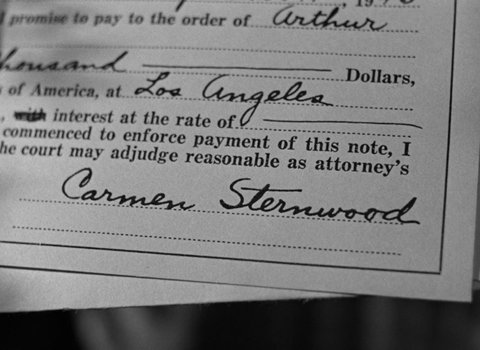 , 19
I promise to pay to the order of Arthur
housand Dollars,
of America, at Los Angeles
, with interest at the rate of
commenced to enforce payment of this note, I
he court may adjudge reasonable as attorney's
Carmen Sternwood